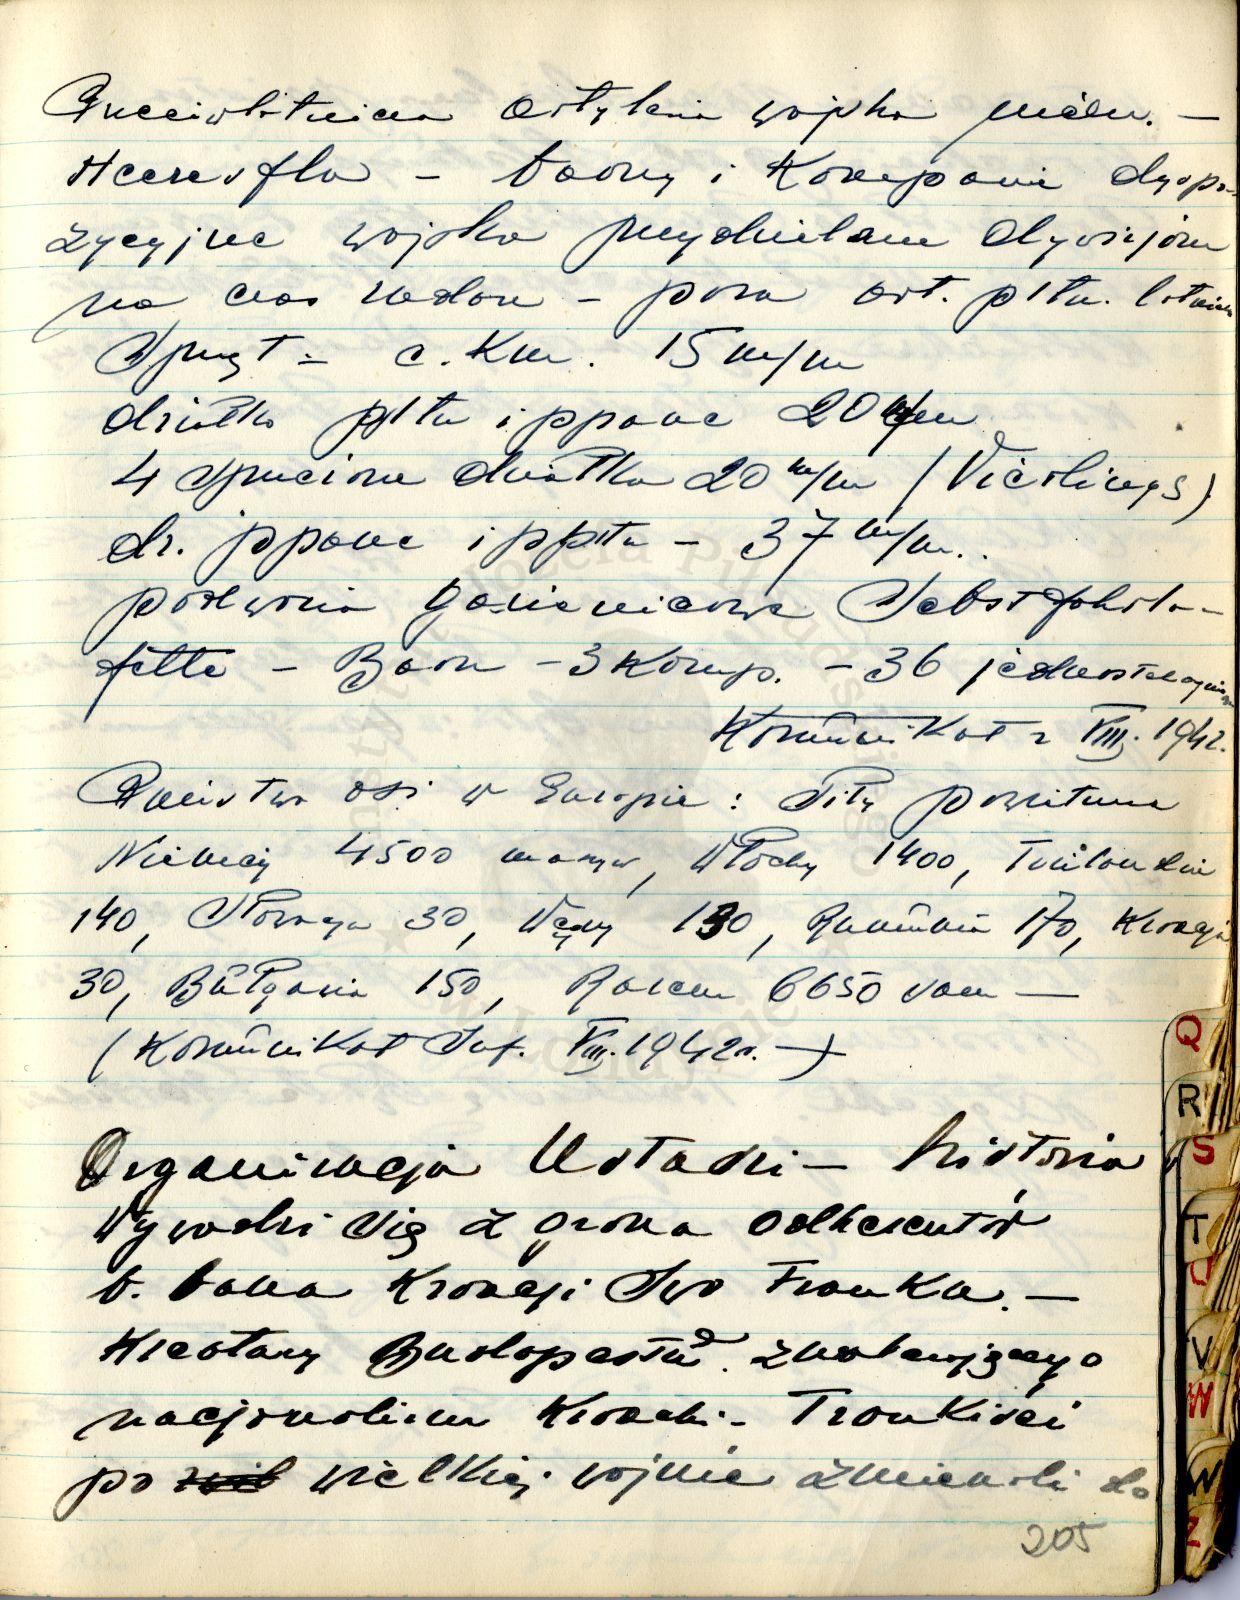 Przeciwlotnicza artyleria wojska niem. –
Heeresfla – baony i kompanie dyspo-
zycyjne wojska przydzielane dywizjom
na czas zadań – poza art. pltn. lotnicza
Sprzęt – c. Km. 15 m/m
działko pltn i ppanc 20 m/m
4 sprzężone działka 20 m/m (Vierlings)
dz. ppanc i ppltn – 37 m/m.
podwozia gąsienicowe Selbstfahrla-
fette – Baon – 3 Komp. – 36 jednostek ogniow.
Komunikat z VIII. 1942.
Państwa osi w Europie: Siły powietrzne
Niemcy 4500 maszyn, Włochy 1400, Finlandia
140, Słowacja 30, Węgry 130, Rumunia 170, Kroacja
30, Bułgaria 150, Razem 6650 sam –
(Komunikat Inf. VIII. 1942 r. –)
Organizacja Ustaszi – historia
Wywodzi się z grona adherentów
b. bana Kroacji Ivo Franka. –
Kreatury Budapesztu zwalczającego
nacjonalizm Kroacki – Frankiści
po wielkiej wojnie zmieniali do
205
Instytut Józefa Piłsudskiego
w Londynie
Q
R
S
T
U
V
W
W
Z